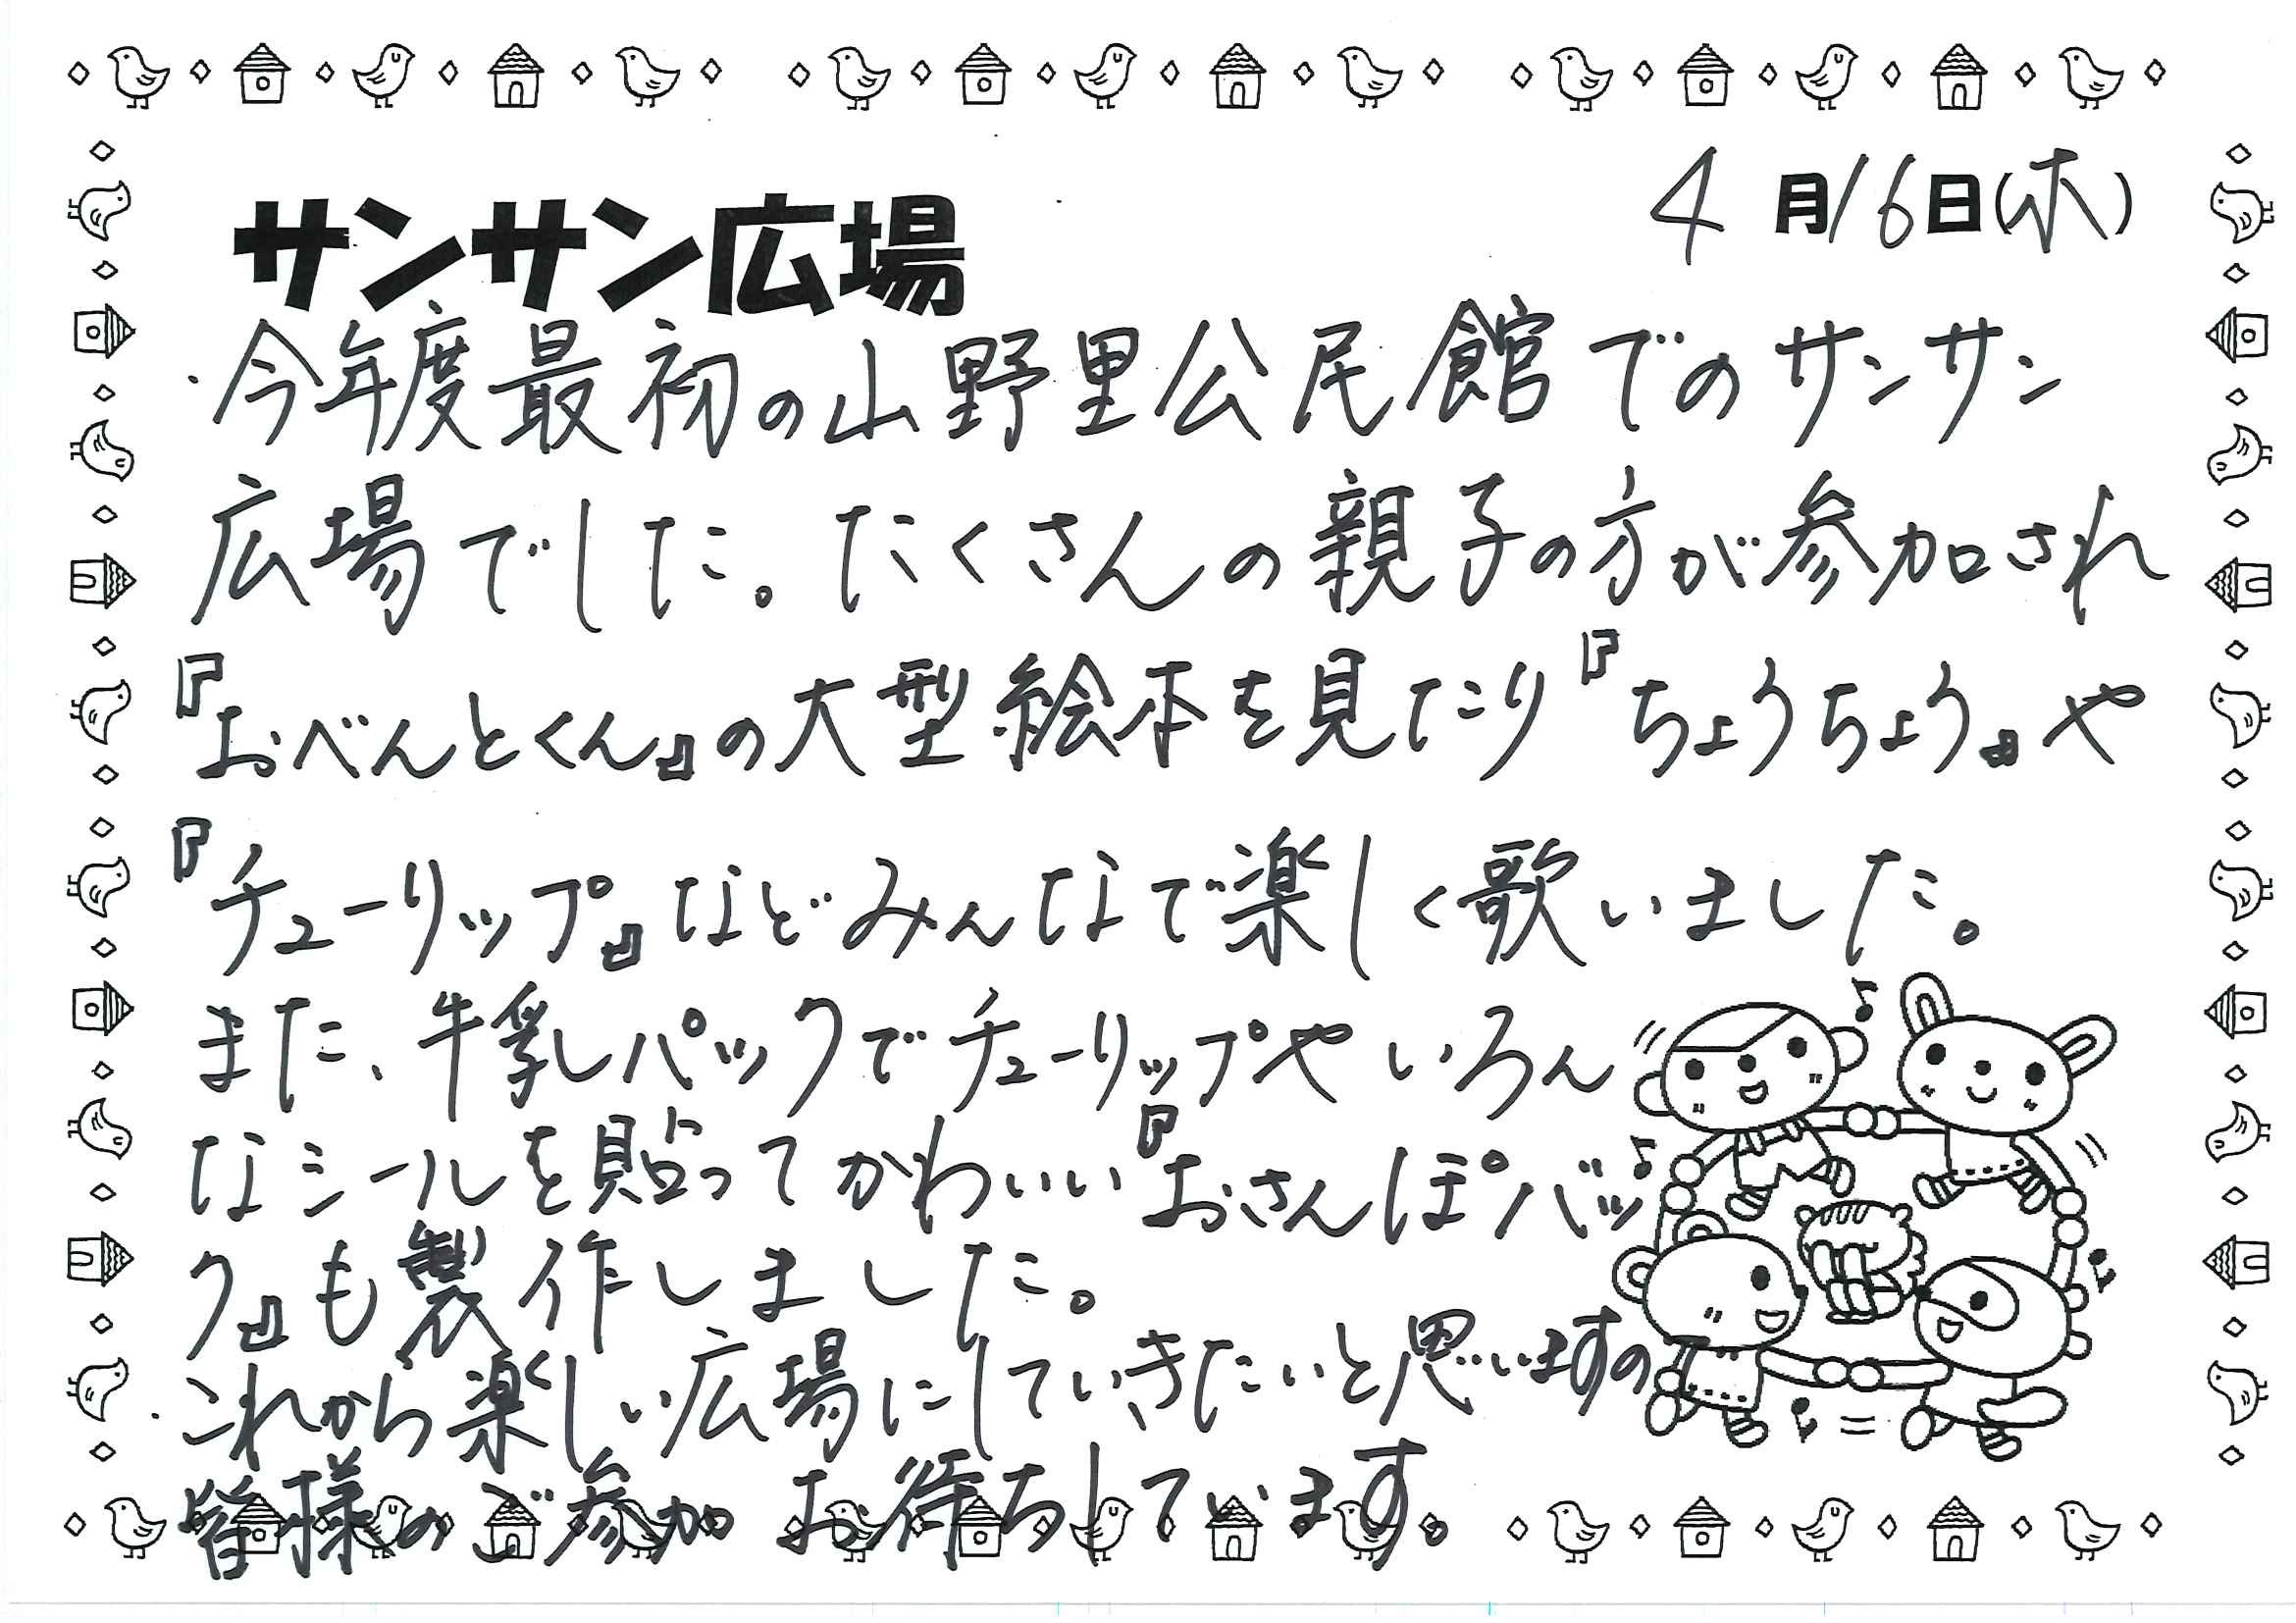 4月16日(木)
サンサン広場
今年度最初の山野里公民館でのサンサン
広場でした。たくさんの親子の方が参加され
『おべんとくん』の大型絵本を見たり『ちょうちょう』や
『チューリップ』などみんなで楽しく歌いました。
また、牛乳パックでチューリップやいろん
なシールを貼ってかわいい『おさんぽバッ
ク』も製作しました。
これから楽しい広場にしていきたいと思いますの
皆様のご参加お待ちしています。